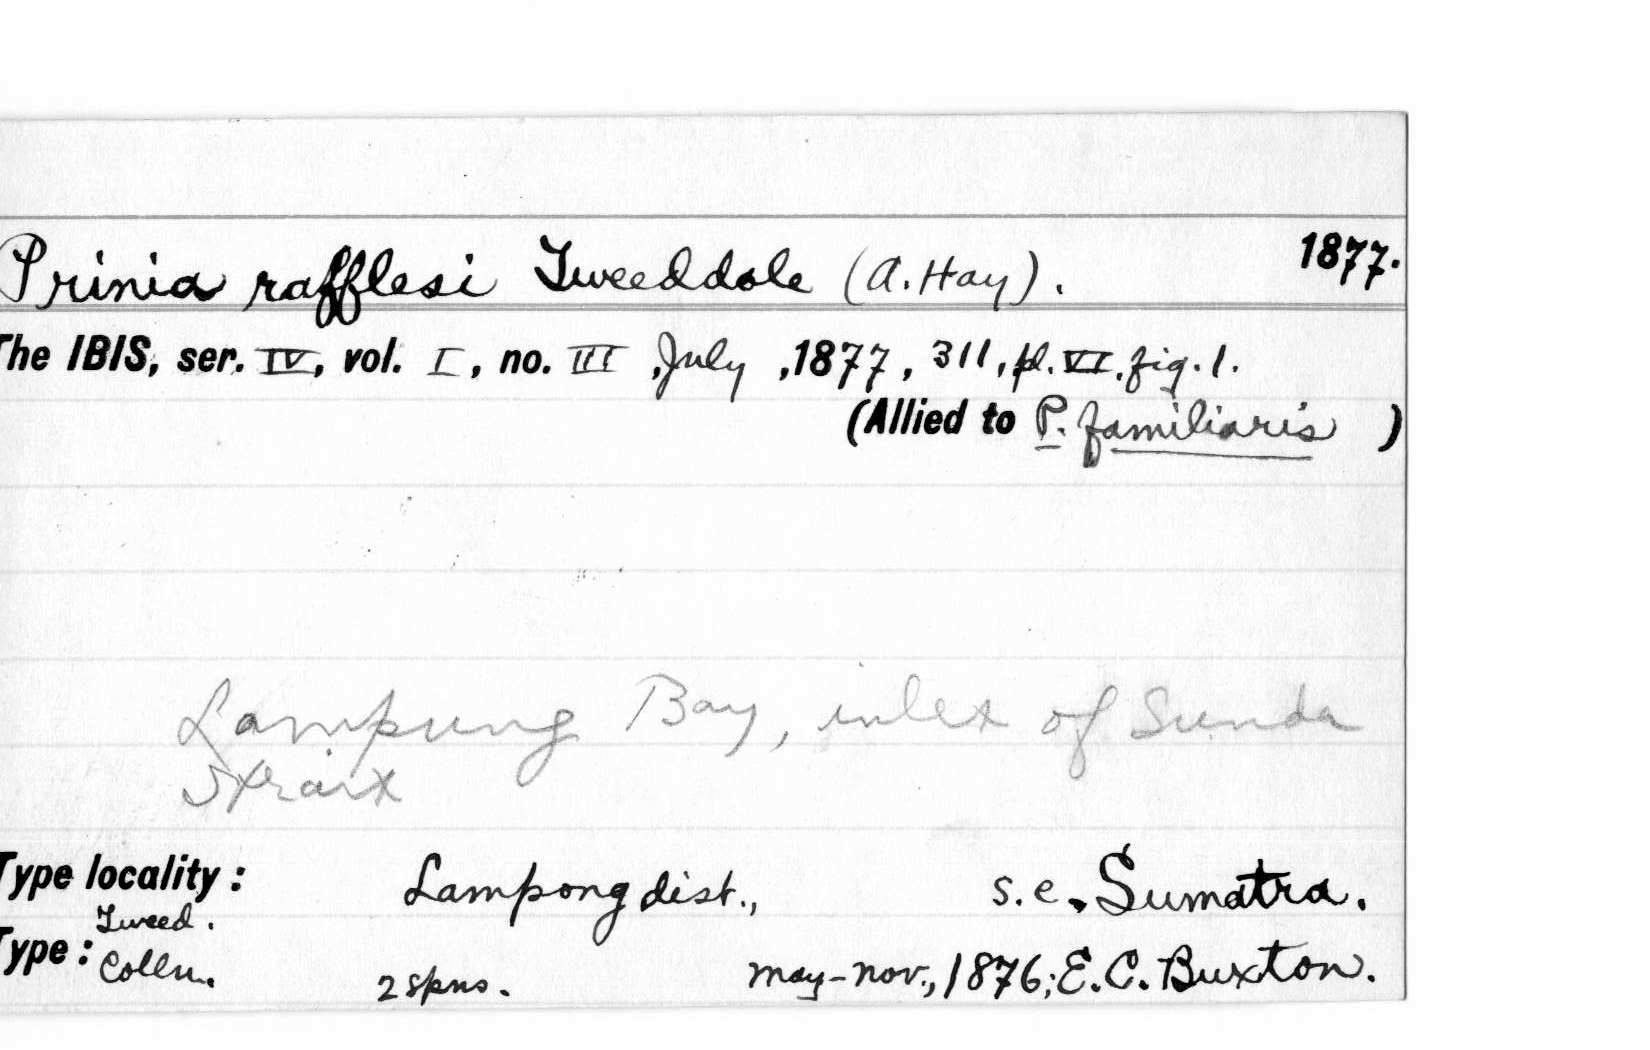 Prinia rafflesi Tweeddale (A. Hay). 1877.
The IBIS, ser. IV, vol. I, no. III, July, 1877, 311, pl. VI, fig. 1.
(Allied to P. familiaris )
Lampung Bay, inlet of Sunda
Strait
Type locality: Lampong dist., s.e. Sumatra.
Type: Tweed. Colln. 2 spns. May-Nov., 1876; E. C. Buxton.